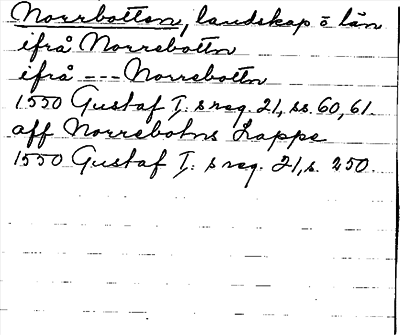 Norrbotten, landskap o län
ifrå Norrebottn
ifrå --- Norrebottn
1550 Gustaf I: s reg. 21, ss. 60, 61.
aff Norrebotns Lappe
1550 Gustaf I: s reg. 21, s. 250.